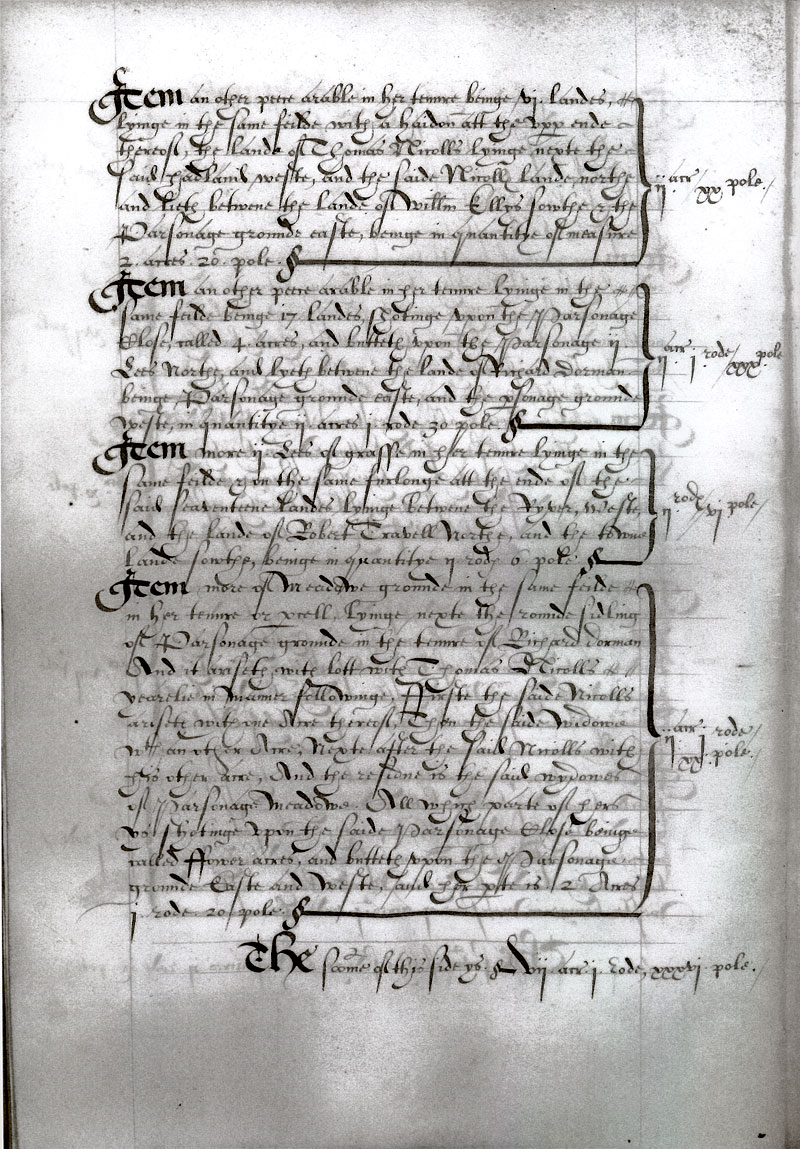 Item an other peece arable in her tenure beinge vi. landes,
lyinge in the same feilde with a hadon att the upp ende
thereof, the lande of Thomas Nicolls lyinge nexte the
said hadland weste, and the saide Nicolls lande northe
and lieth betwene the lande of Willm Ellys sowthe & the
Parsonage grounde easte, beinge in quantitye of measure
2. acres 20. pole.
ii. acr xx pole.
Item an other peece arable in her tenure lyinge in the
same feilde beinge 17 landes, shotinge upon the Parsonage
Close, called 4. acres, and butteth upon the Parsonage ii
Lees Northe, and lyeth betwene the lande of Richard Dorman
beinge Parsonage grounde easte, and the psonage grounde
weste, in quantitye ii acres i rode 30 pole.
ii acr. i rode xxx pole
Item more ii Lees of grasse in her tenure lyinge in the
same feilde upon the same furlonge att the ende of the
said seaventeene landes lyinge betwene the Ryver, Weste
and the lande of Robert Travell Northe, and the towne
lande sowthe, beinge in quantitye ii rods 6 pole.
ii rods vi pole
Item more of Meadowe grounde in the same feilde
in her tenure lyinge nexte the rounde sidling
of Parsonage grounde in the tenure of Richard Dorman
And it ariseth with lott with Thomas Nicolls
yearelie in manner followinge, Firste the saide Nicolls
ariseth with one Acre thereof, Then the saide widowe
wth an other Acre, Nexte after the said Nicolls with
his other acre, And the residue is the said wydowes
of Parsonage meadowe. All which parte of hers
ys shotinge upon the saide Parsonage Close beinge
called ffower acres, and butteth upon the Parsonage
grounde Easte and Weste, and her pte is 2 Acres
i rode 20 pole.
ii acr. i rode
xx pole.
The some of this side ys vii acr i. rode, xxxvi pole.